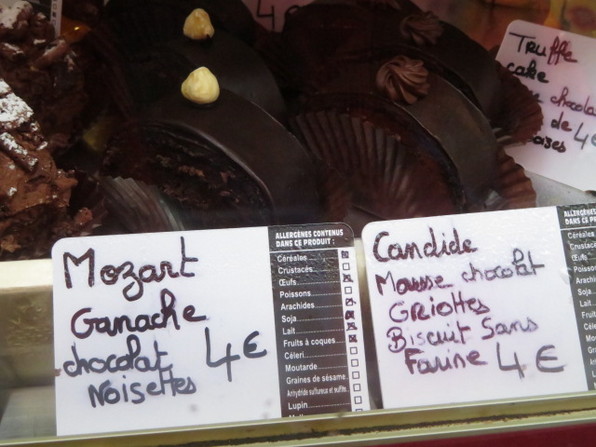 4€
Truffe
cake
chocolat
de
4€
Mozart
Ganache
chocolat
Noisettes
4€
ALLERGÈNES CONTENUS
DANS CE PRODUIT :
Céréales
Crustacés
Œufs
Poissons
Arachides
Soja
Lait
Fruits à coques
Céleri
Moutarde
Graines de sésame
Anhydride sulfureux et sulfites
Lupin
Candide
Mousse chocolat
Griottes
Biscuit Sans
Farine 4€
ALLER
DANS CE
Céréales
Crustacé
Œufs
Poisson
Arachid
Soja
Lait
Fruits
Céleri
Mouta
Graine
Anhydr
Lupin